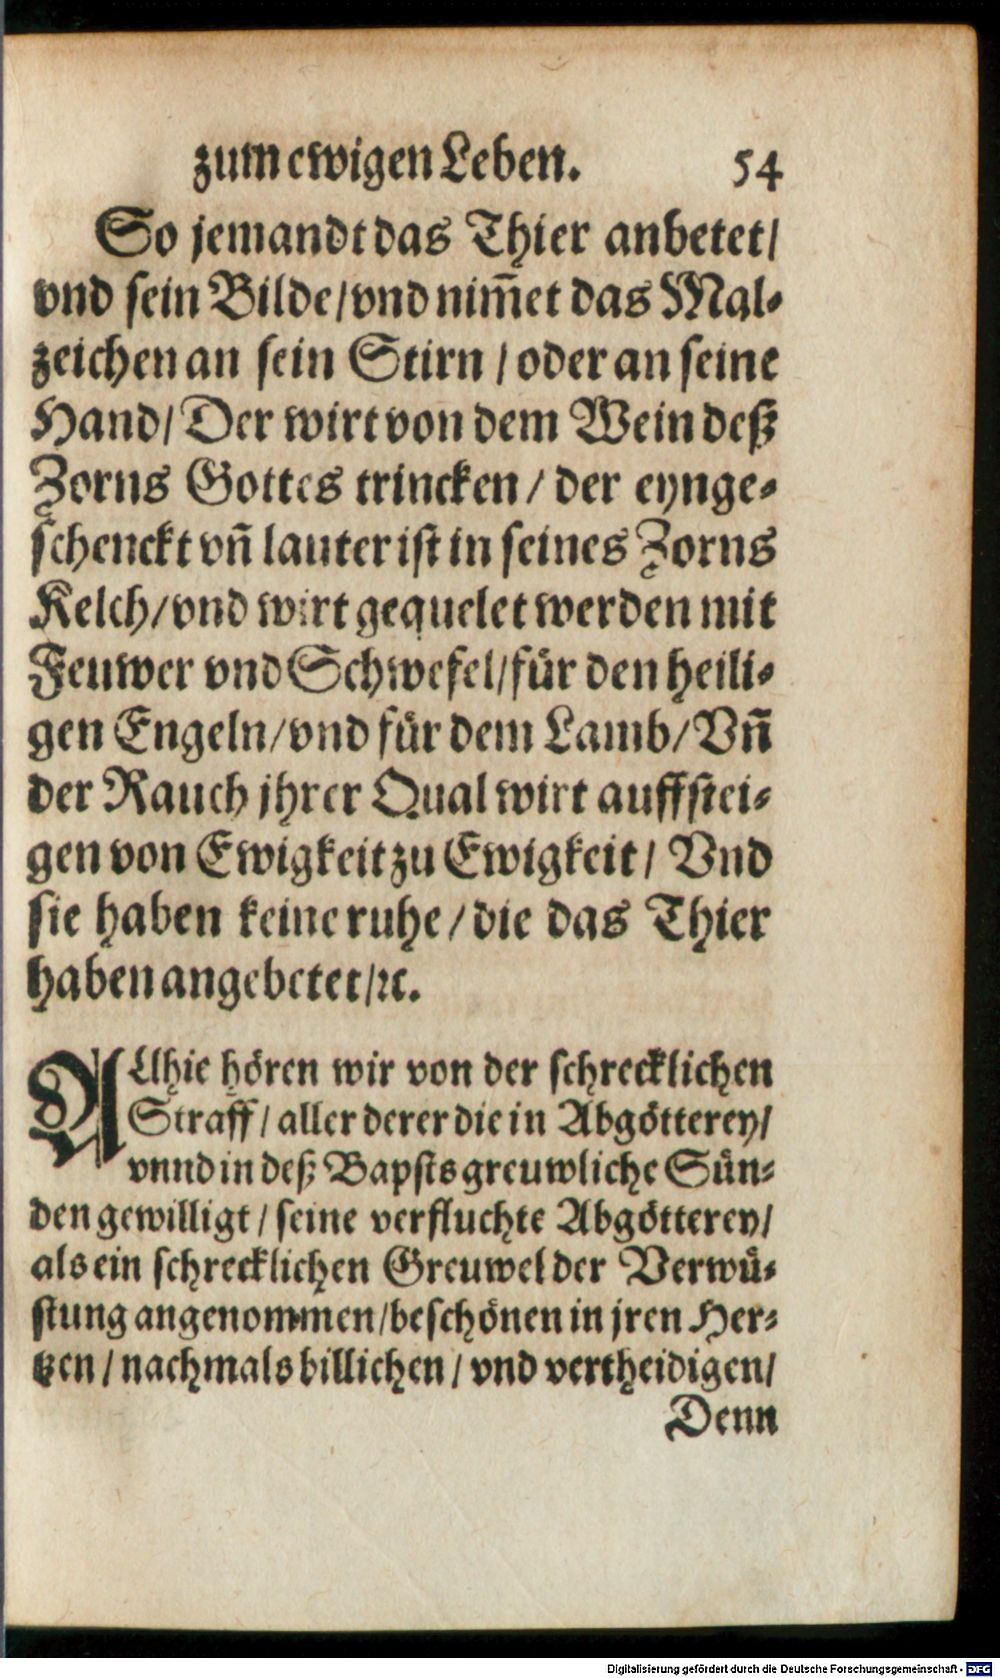 zum ewigen Leben. 54
So jemandt das Thier anbetet/
vnd sein Bilde/vnd nim̃et das Mal-
zeichen an sein Stirn / oder an seine
Hand/ Der wirt von dem Wein deß
Zorns Gottes trincken / der eynge-
schenckt vñ lauter ist in seines Zorns
Kelch/vnd wirt gequelet werden mit
Feuwer vnd Schwefel/für den heili-
gen Engeln/vnd für dem Lamb/ Vñ
der Rauch jhrer Qual wirt auffstei-
gen von Ewigkeit zu Ewigkeit / Vnd
sie haben keine ruhe / die das Thier
haben angebetet/ꝛc.
ALlhie hören wir von der schrecklichen
Straff / aller derer die in Abgötterey/
vnnd in deß Bapsts greuwliche Sün-
den gewilligt / seine verfluchte Abgötterey/
als ein schrecklichen Greuwel der Verwü-
stung angenommen/beschönen in jren Her-
tzen / nachmals billichen / vnd vertheidigen/
Denn
Digitalisierung gefördert durch die Deutsche Forschungsgemeinschaft - DFG